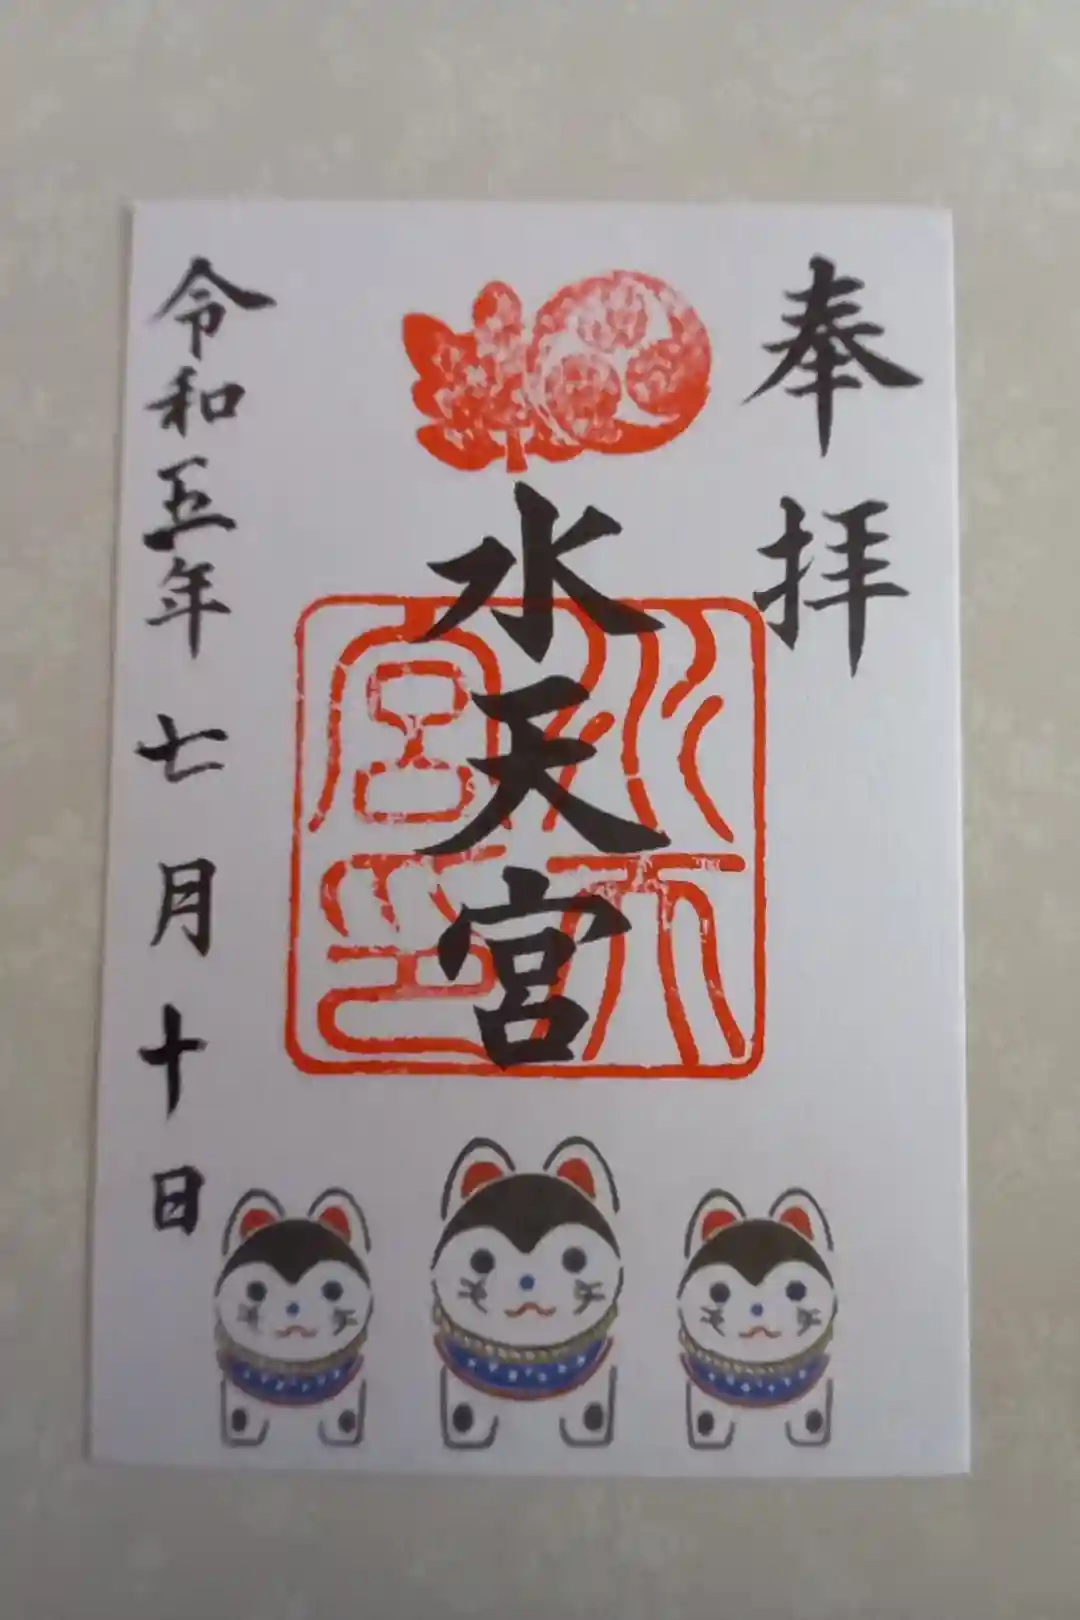 奉拝
水天宮
水天宮印
令和五年七月十日